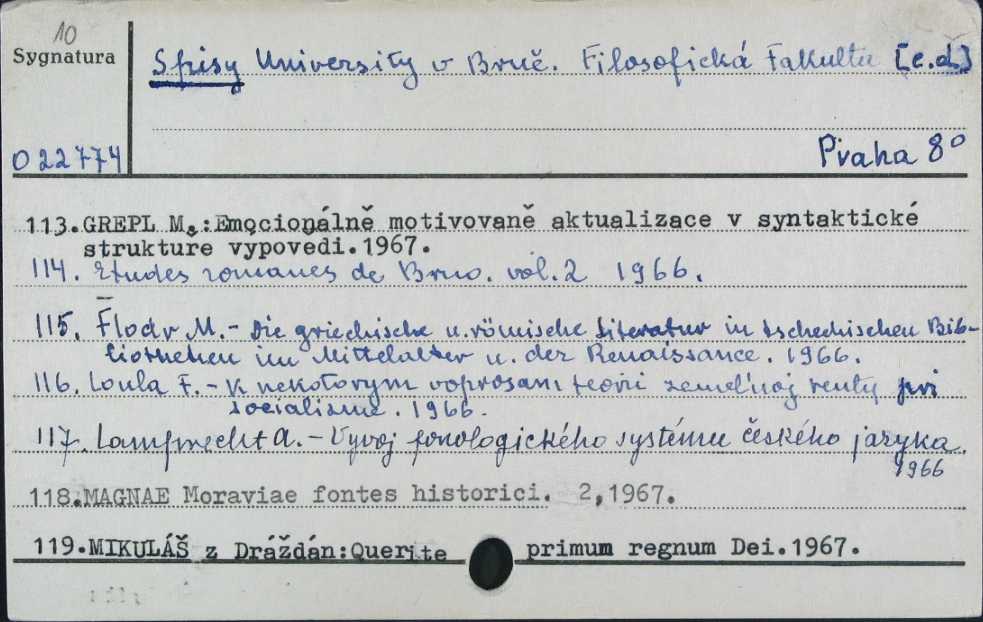 10
Sygnatura
Spisy University v Brně. Filosofická Fakulta [e.d.]
022774
Praha 8°
113. GREPL M.: Emocionálně motivovaně aktualizace v syntaktické
strukture vypovedi. 1967.
114. Etudes romanes de Brno. vol. 2 1966.
115. Flodr M. - Die griechische u. römische Literatur in tschechischen Bib-
liotheken im Mittelalter u. der Renaissance. 1966.
116. Loula F. - K nekotorym voprosam teorii zemel'noj renty pri
socialisme. 1966.
117. Lamprecht A. - Vyvoj fonologického systému českého jazyka.
1966
118. MAGNAE Moraviae fontes historici. 2, 1967.
119. MIKULÁŠ z Drážďán: Querite primum regnum Dei. 1967.